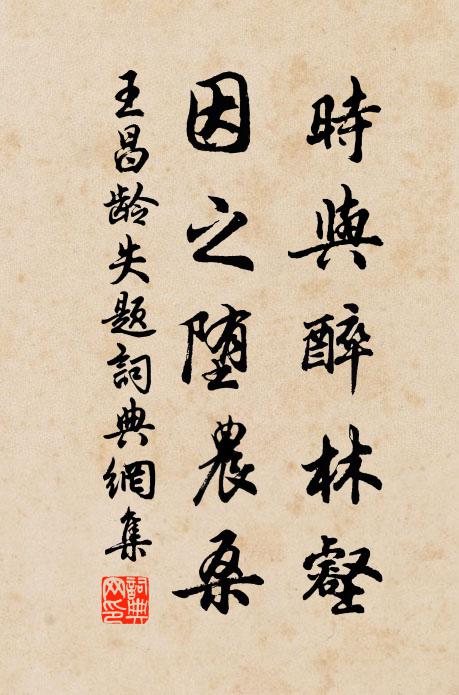 時與醉林壑
因之堕農桑
王昌龄失题詞典網集
詞典网印